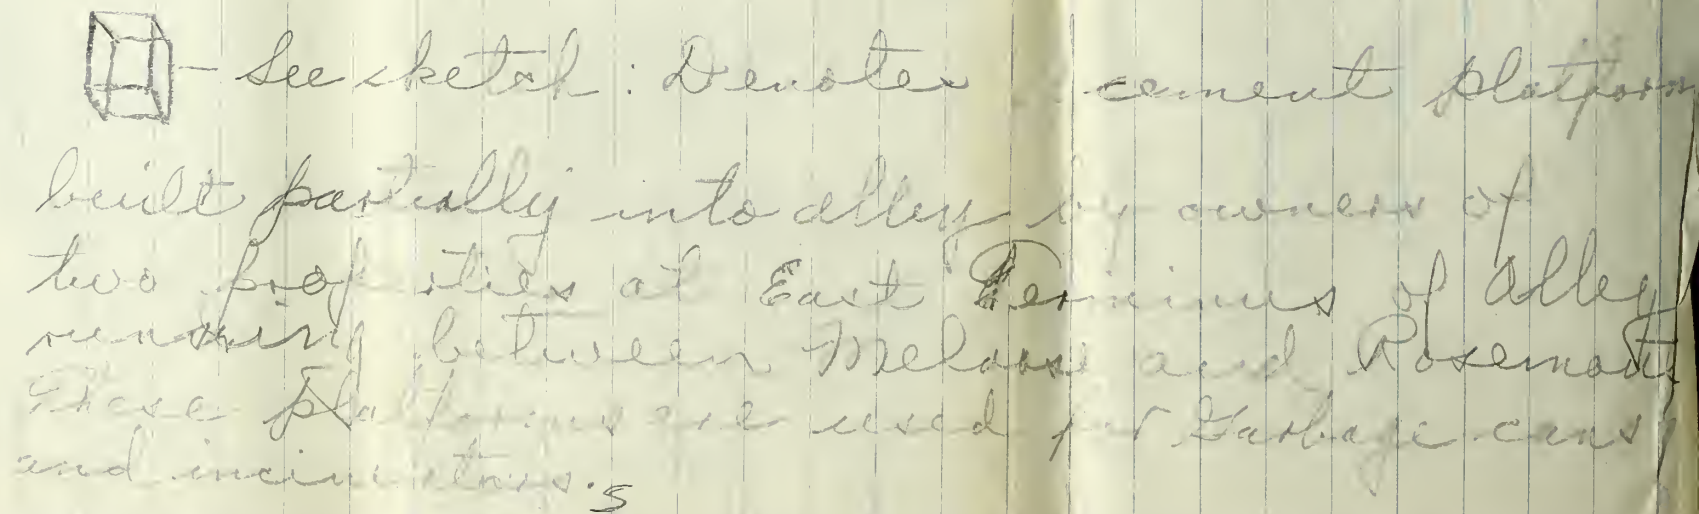 - See sketch : Denotes cement platform
built partially into alley by owners of
two properties at East Terminus of Alley
running between Melrose and Rosemont
These platforms are used for Garbage cans
and incinerators. 5